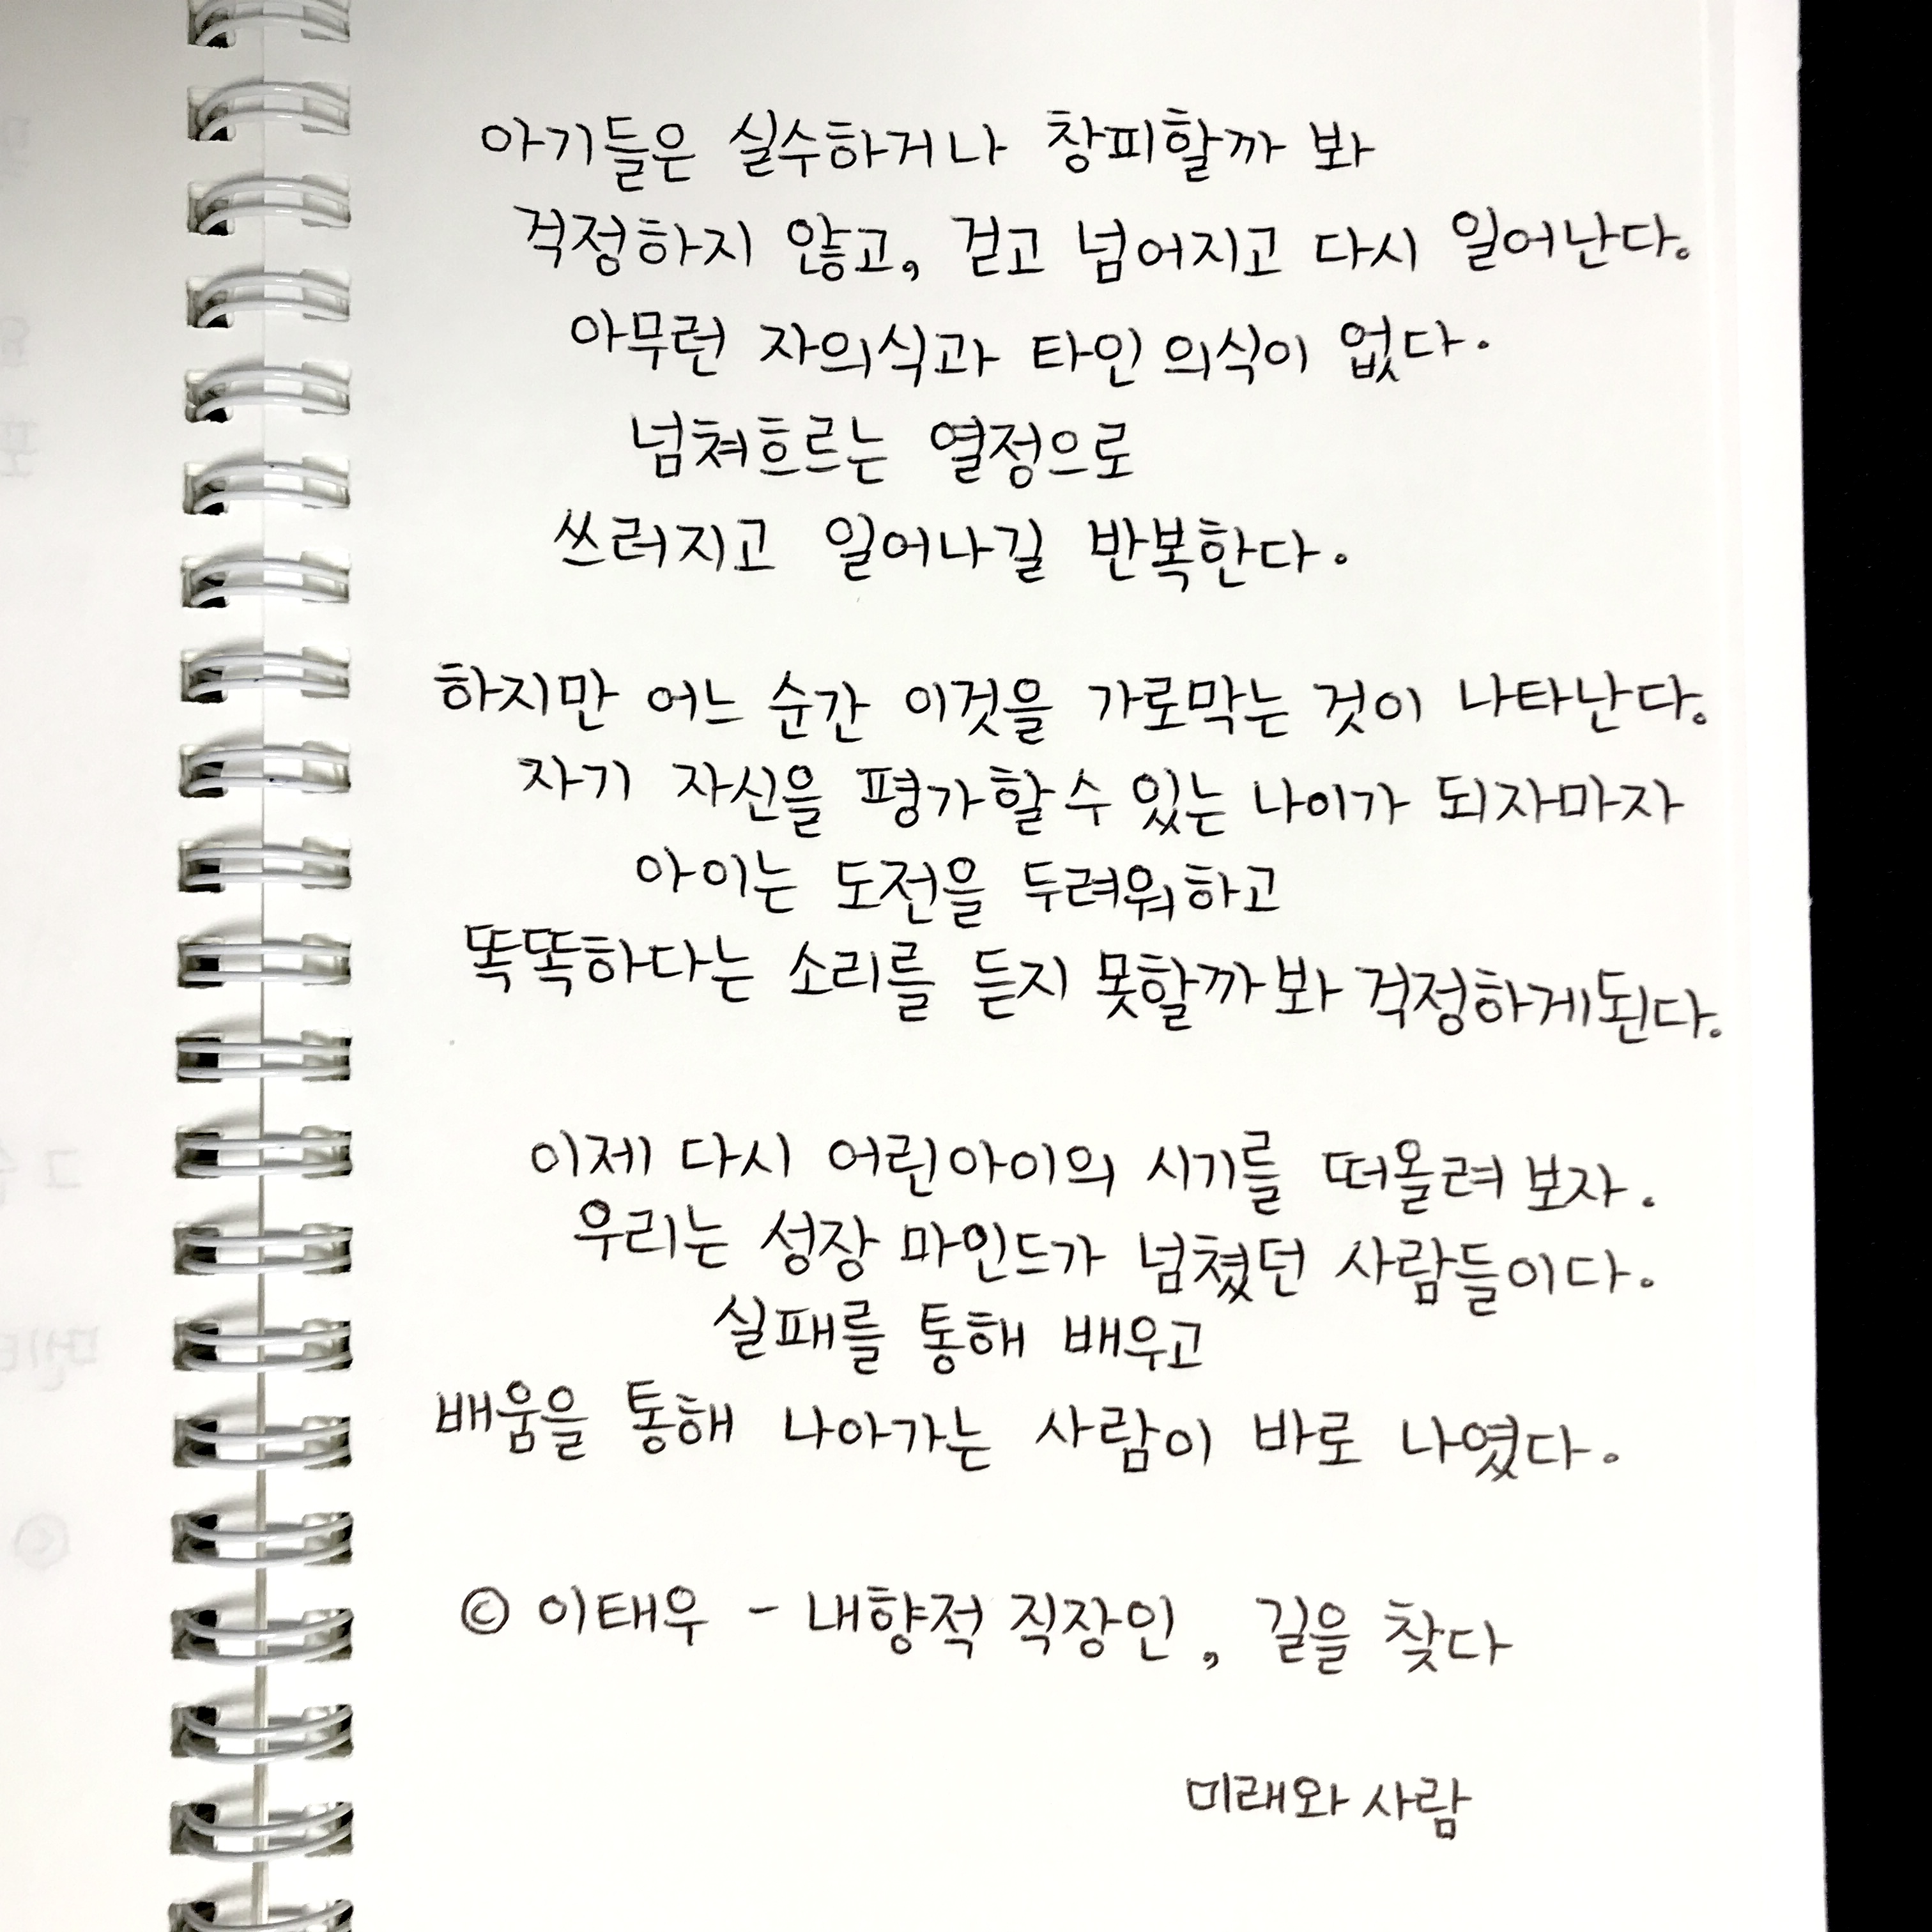 아기들은 실수하거나 창피할까 봐
걱정하지 않고, 걷고 넘어지고 다시 일어난다.
아무런 자의식과 타인 의식이 없다.
넘쳐흐르는 열정으로
쓰러지고 일어나길 반복한다.
하지만 어느 순간 이것을 가로막는 것이 나타난다.
자기 자신을 평가할 수 있는 나이가 되자마자
아이는 도전을 두려워하고
똑똑하다는 소리를 듣지 못할까 봐 걱정하게 된다.
이제 다시 어린아이의 시기를 떠올려 보자.
우리는 성장 마인드가 넘쳤던 사람들이다.
실패를 통해 배우고
배움을 통해 나아가는 사람이 바로 나였다.
© 이태우 - 내향적 직장인, 길을 찾다
미래와 사람